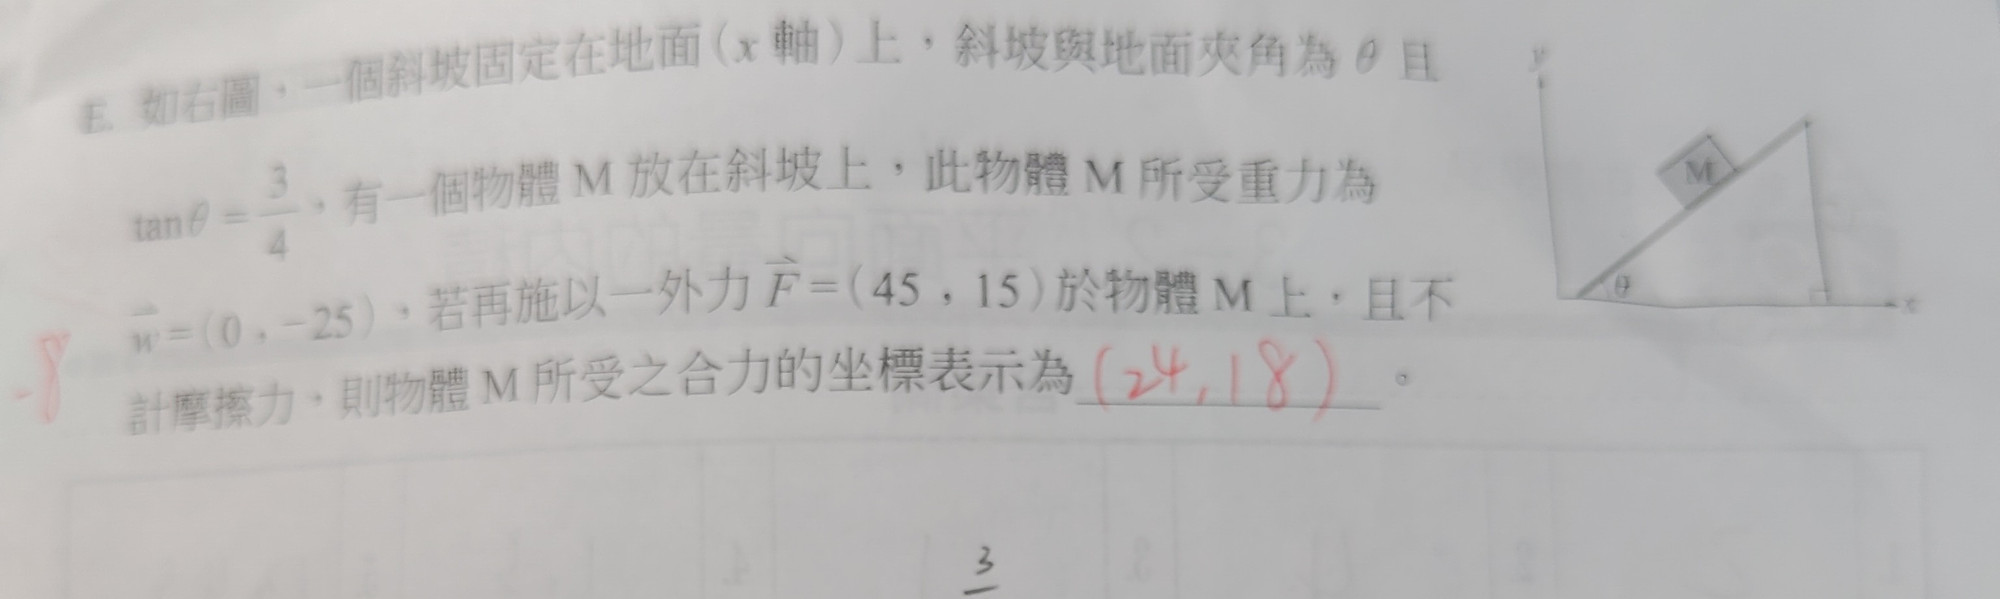 E. 如右圖，一個斜坡固定在地面(x軸)上，斜坡與地面夾角為θ且
tanθ=3/4，有一個物體M放在斜坡上，此物體M所受重力為
w=(0，-25)，若再施以一外力F=(45，15)於物體M上，且不
計摩擦力，則物體M所受之合力的坐標表示為(24,18)。
-8
y
M
θ
x
3